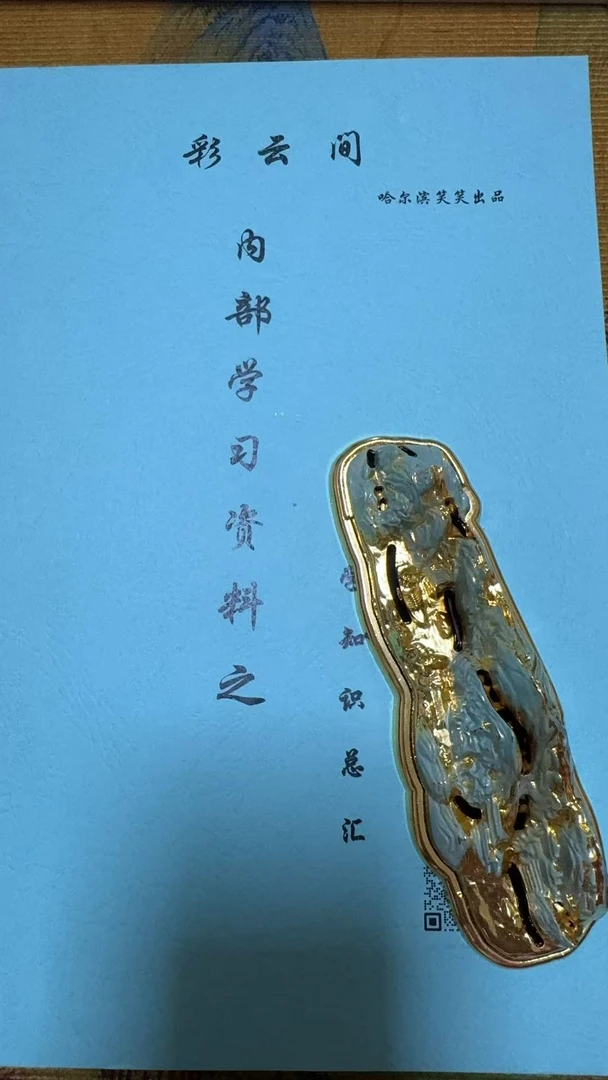 彩云间
哈尔滨笑笑出品
内部学习资料之
学知识总汇